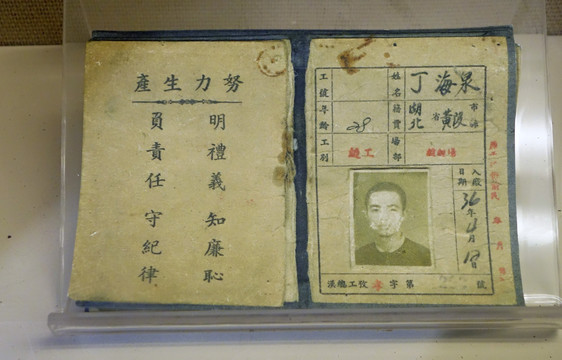 努力生產
明禮義 知廉恥
負責任 守紀律
姓名 丁海泉
籍貫 湖北省黃陂市
場部
工號
年齡 28
工別 縫工
入廠日期 36年4月1日
字第 號